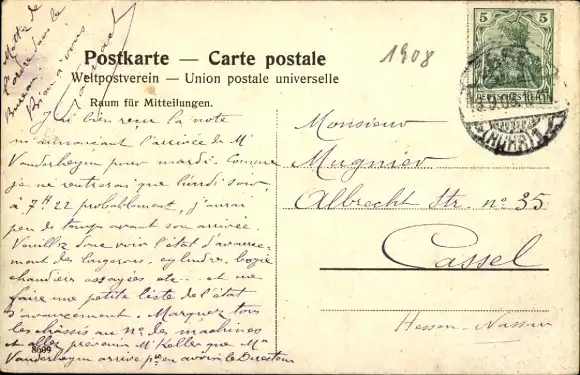 Mettre de
l'ordre sur le
Bureau
Bien à vous
Postkarte — Carte postale
Weltpostverein — Union postale universelle
Raum für Mitteilungen.
1908
5 5
DEUTSCHES REICH
J'ai bien reçu la note
m'annonçant l'arrivée de Mr
Vanderheym pour mardi. Comme
je ne rentrerai que lundi soir,
à 7h 22 probablement, j'aurai
peu de temps avant son arrivée.
Veuillez donc voir l'état d'avance-
ment de longerons, cylindres, bogie
chaudières essayées etc.. et me
faire une petite liste de l'état
d'avancement. Marquez tous
les châssis au no. de machines
et allez prévenir Mr Keller que Mr
Vanderheym arrive pr en avoir le Directeur
8609
Monsieur
Mugnier
Albrecht Str. no 35
Cassel
Hessen-Nassau